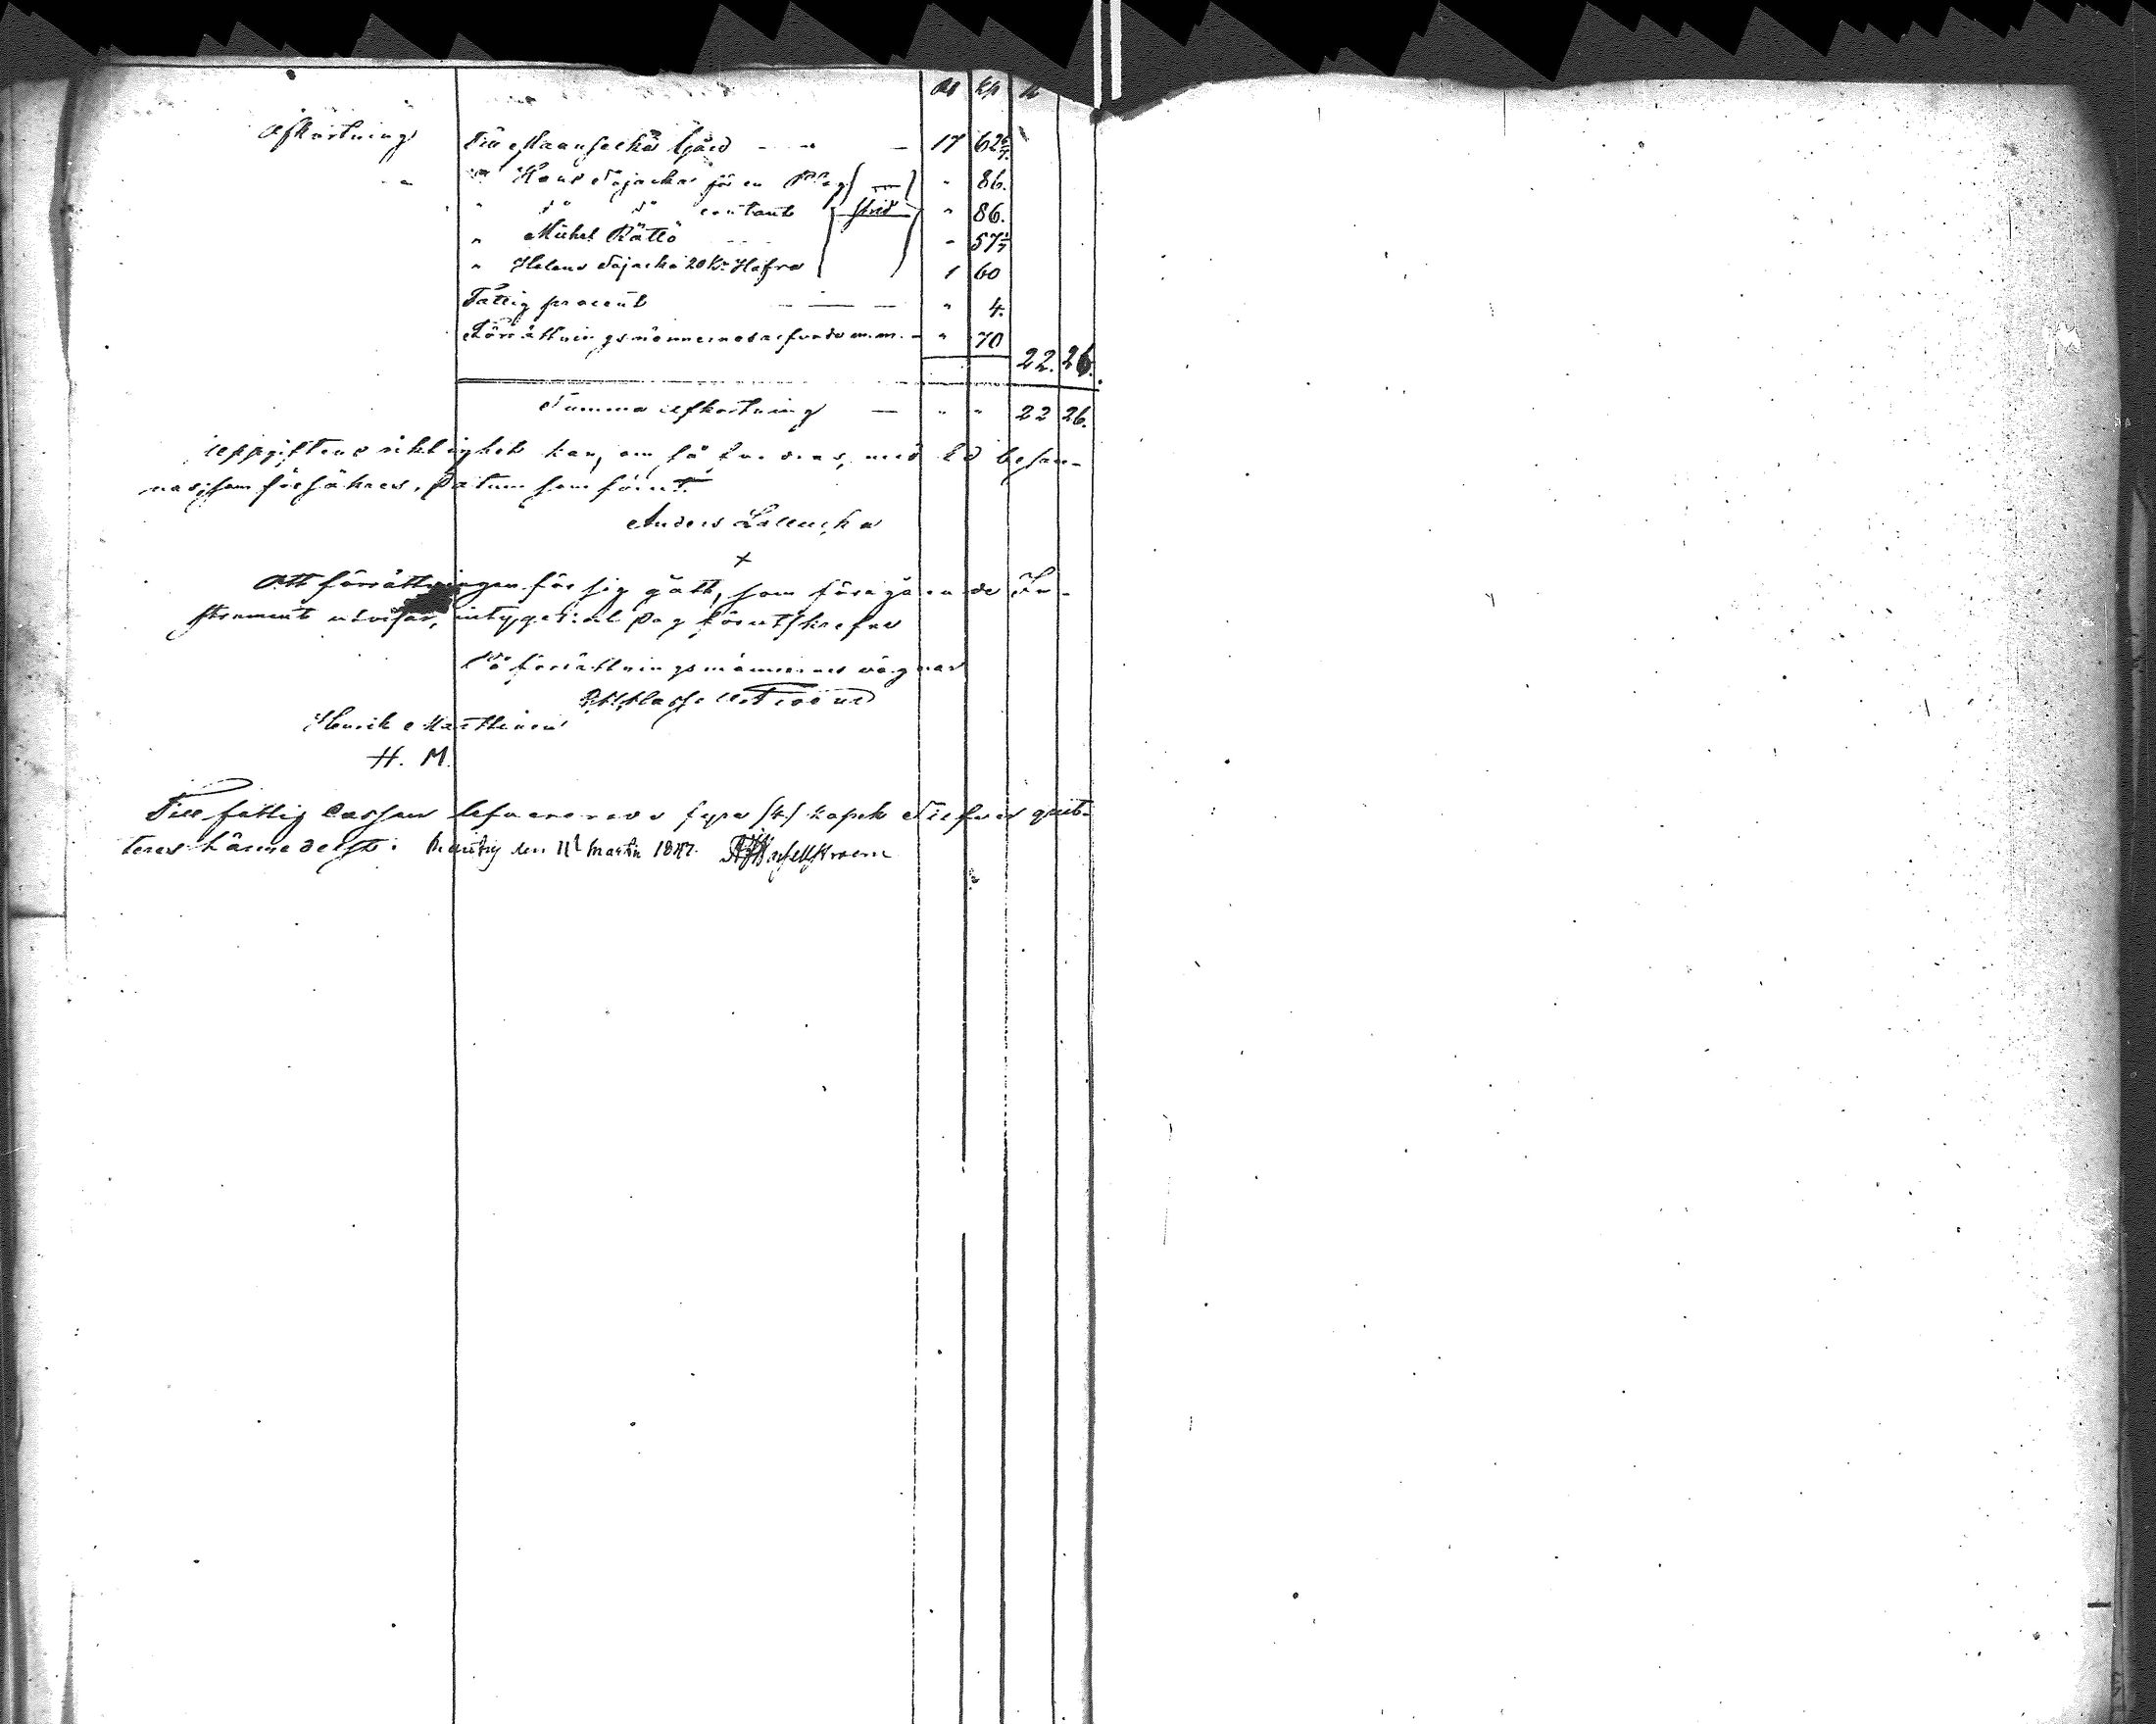 Rb Kp R
Afkortning Till Maanselkä Gård - " - 17 62 6/7.
" " Hans Sajacka för en Väg " 86.
" d:o d:o contant Strid " 86.
" Michel Rättö " 57 1/7
" Helena Sajacka 20 K:r Hafra 1 60
Fattig procent " 4.
Förrättningsmännernes arfvode m.m. - " 70
22. 26.
Summa afkortning — " " 22 26.
uppgiftens riktighet kan, om så fordras, med Ed besan-
nas, som försäkras, Datum som förut.
Anders
+
Att förrättningen för sig gått, som föregående In-
strument utvisar, intygget: ut Dag förutskrefne
På förrättningsmännernes vägnar
Henrik Marttinen
H. M.
Till fattig Cassan lefvererade fyra /4/ kopek Silfver quit-
teras härmedelst. den 11 Martii